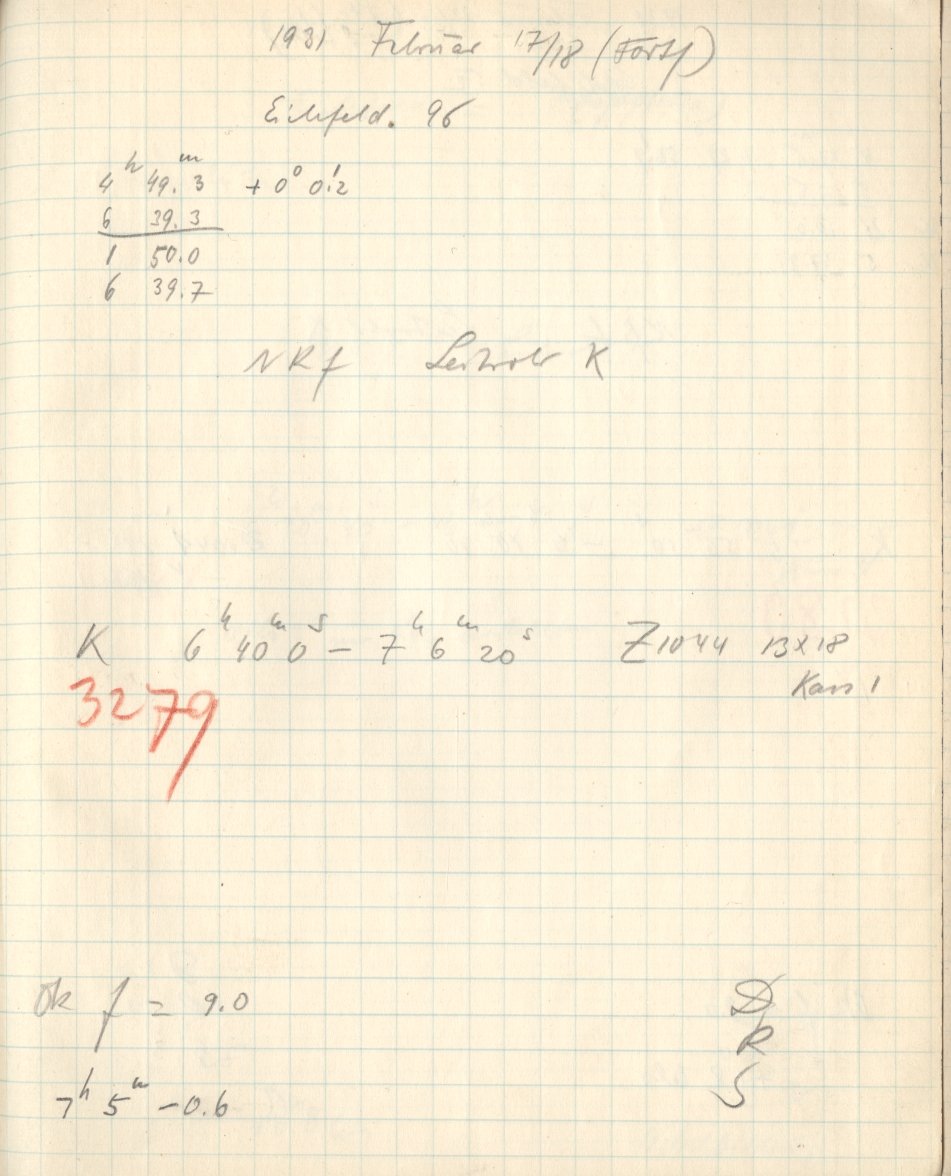 1931 Februar 17/18 (Forts)
Eichfeld. 96
4ʰ 49.ᵐ3 + 0° 0.'2
6 39.3
1 50.0
6 39.7
NRf Leitrohr K
K 6ʰ 40ᵐ 0ˢ – 7ʰ 6ᵐ 20ˢ Z1044 13x18
Kass 1
3279
Ok f = 9.0
D
R
7ʰ 5ᵐ – 0.6
S